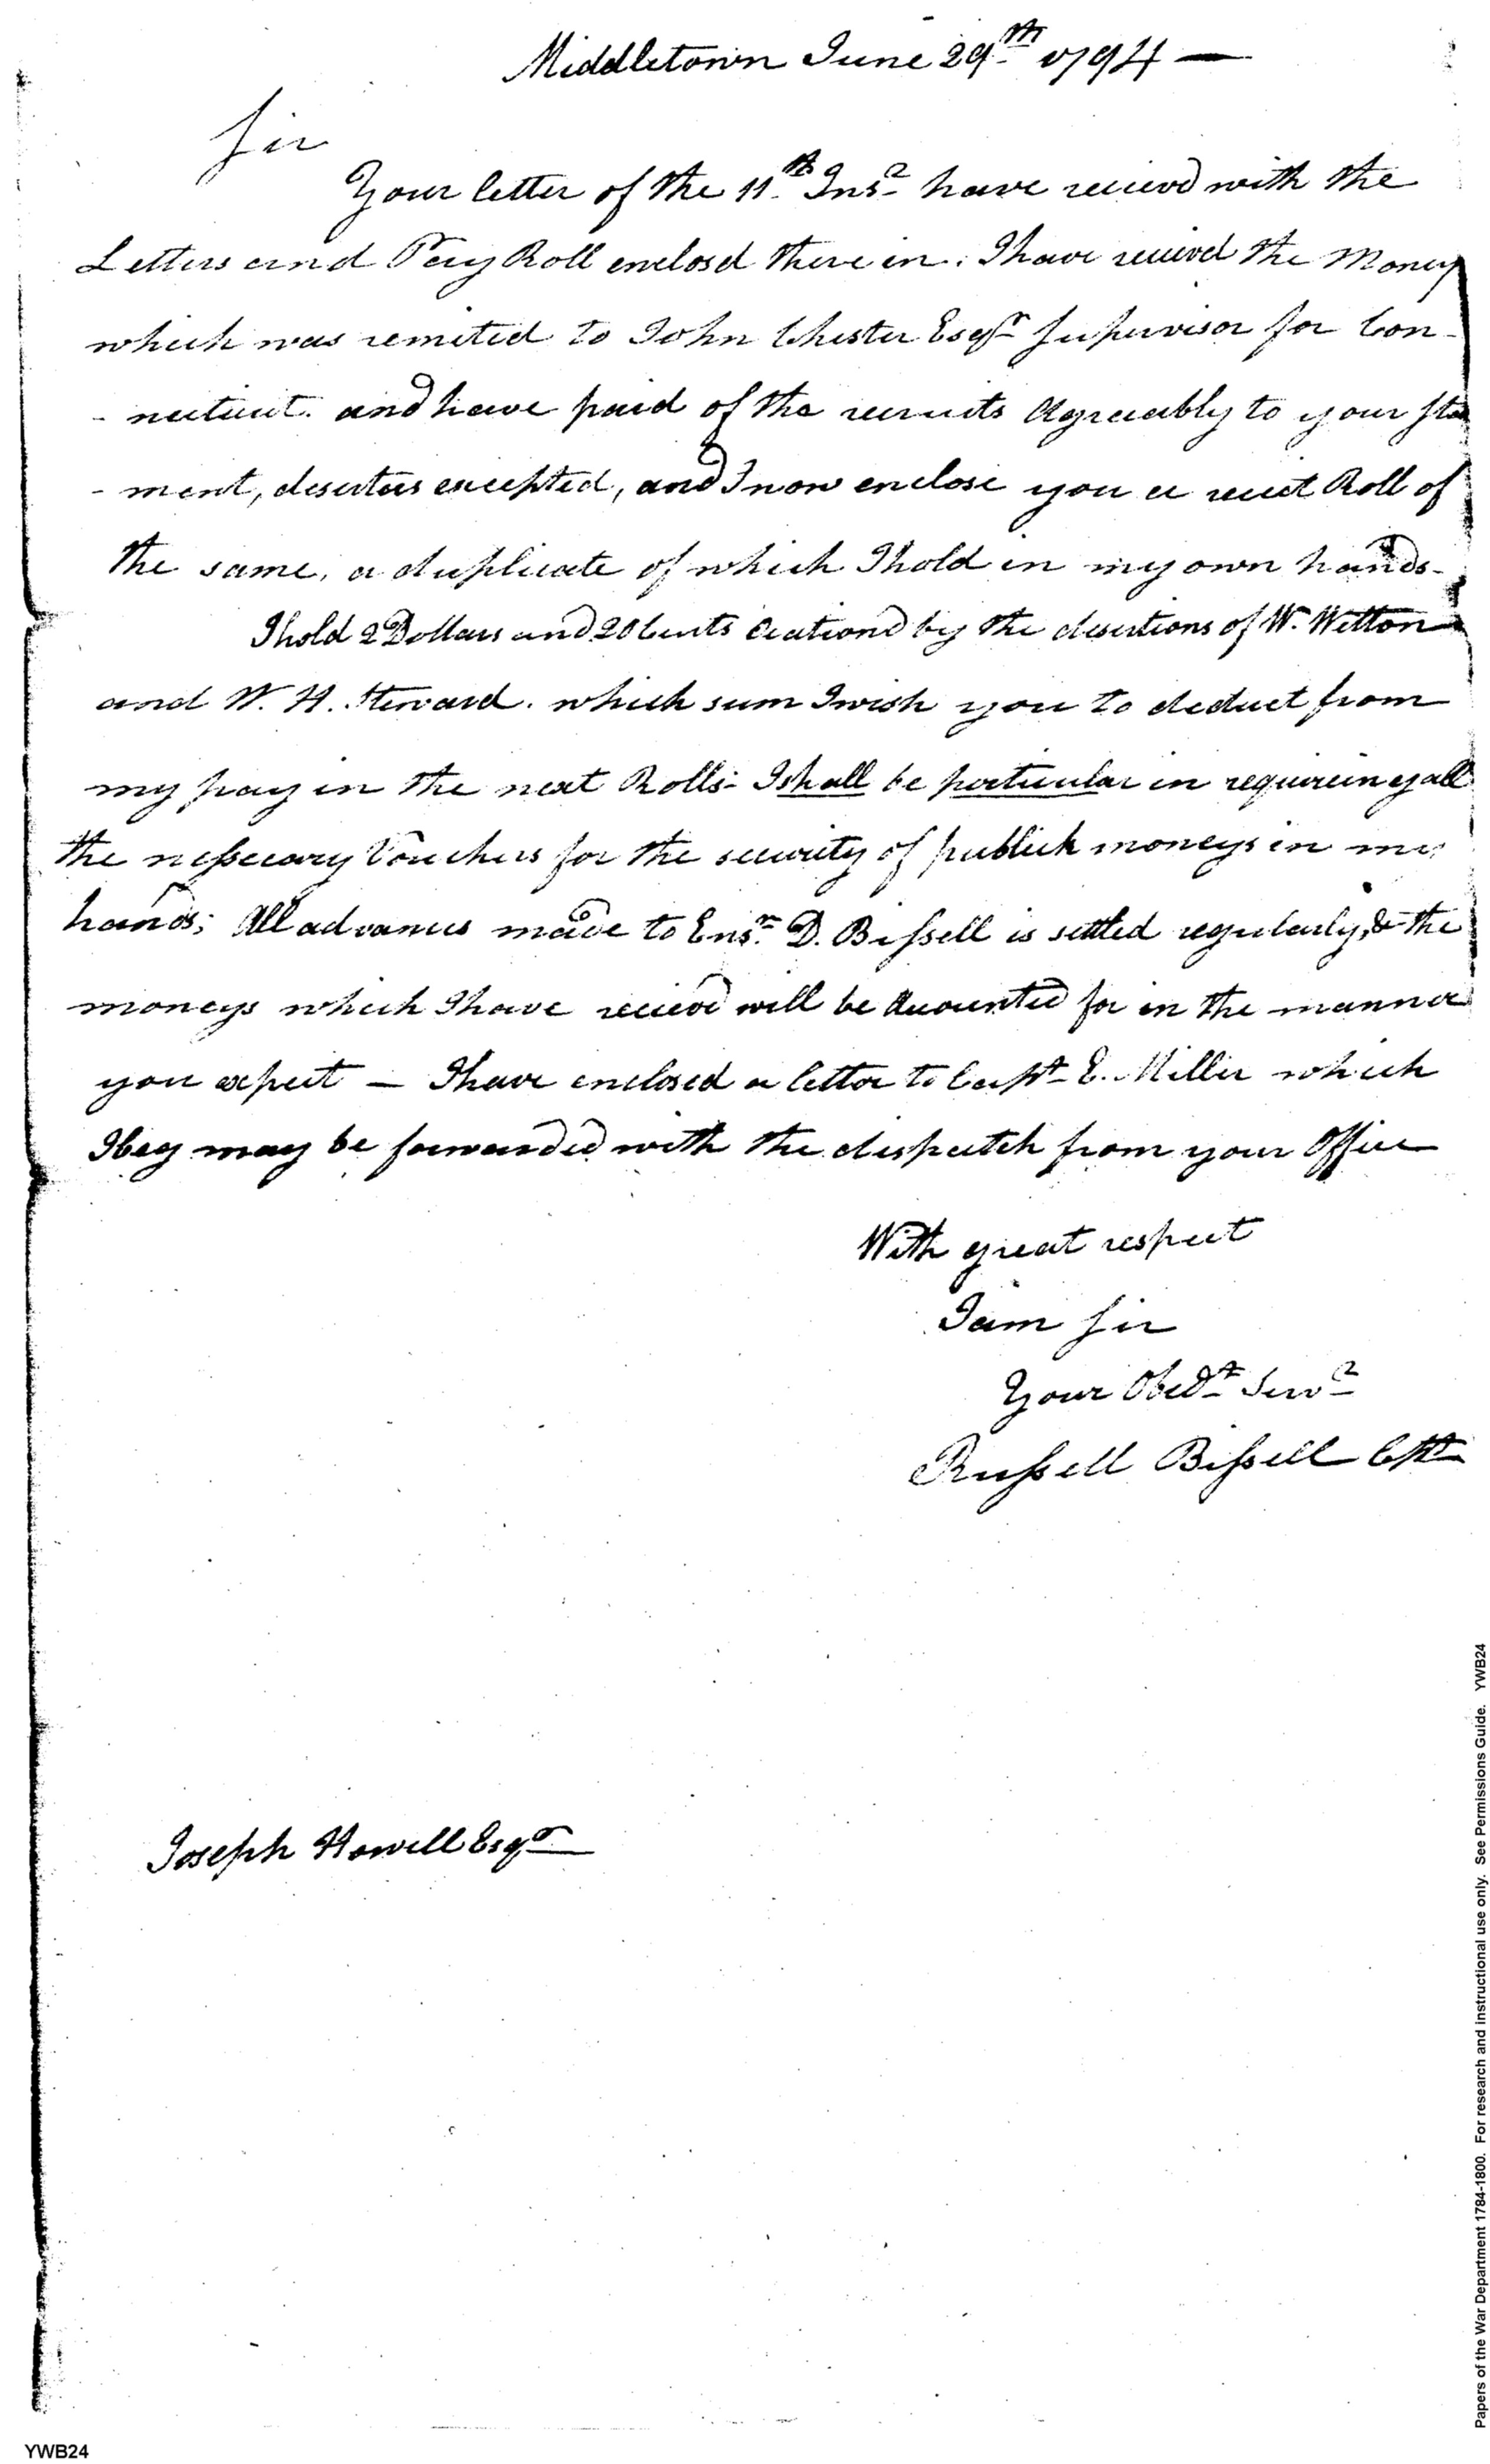 Middletown June 29th 1794 —
Sir
Your letter of the 11th Inst have recievd with the
Letters and Pay Roll enclosd there in. I have recievd the Money
which was remited to John Chester Esqr Supervisor for Con-
- necticut. and have paid of the recruits Agreeably to your
- ment, deserters excepted, and I now enclose you a Roll of
the same, a duplicate of which I hold in my own hands-
I hold 2 Dollars and 20 Cents by the desertions of W. Wetton
and W. H. Steward. which sum I wish you to deduct from
my pay in the next Rolls- I shall be particular in requireing all
the nessecary Vouchers for the security of publick moneys in my
hands; All advances made to Ensn D. Bissell is settled regularly, & the
moneys which I have recievd will be Accounted for in the manner
you expect — I have enclosed a letter to Capt E. Miller which
I beg may be forwarded with the dispatch from your Office
With great respect
I am Sir
Your Obedt Servt
Russell Bissell Cpt
Joseph Howell Esqr
Papers of the War Department 1784-1800. For research and instructional use only. See Permissions Guide. YWB24
YWB24